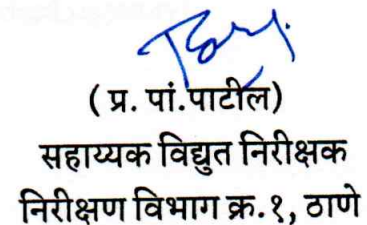 ( प्र. पां.पाटील)
सहाय्यक विद्युत निरीक्षक
निरीक्षण विभाग क्र.१, ठाणे